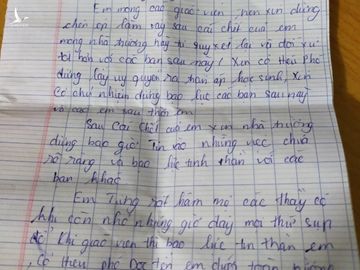 Em mong các giáo viên nên xin đừng
chèn ép làm vậy sau cái chết của em
mong nhà trường hãy tự suy xét lại và đối xử
tốt hơn với các bạn sau này! Xin cô Hiệu Phó
đừng lấy uy quyền ra hăm áp học sinh, Xin
Cô chủ nhiệm đừng bạo lực các bạn sau này
và cả em sau thân em
Sau cái chết của em xin nhà trường
đừng bao giờ Tin vào những việc chưa
rõ ràng và bạo lực tinh thần với các
bạn khác
Em Từng rất hâm mộ các thầy cô
khi còn nhỏ nhưng giờ đây mọi thứ sụp
đổ khi giáo viên thì bạo lực tin thần em
cô hiệu phó